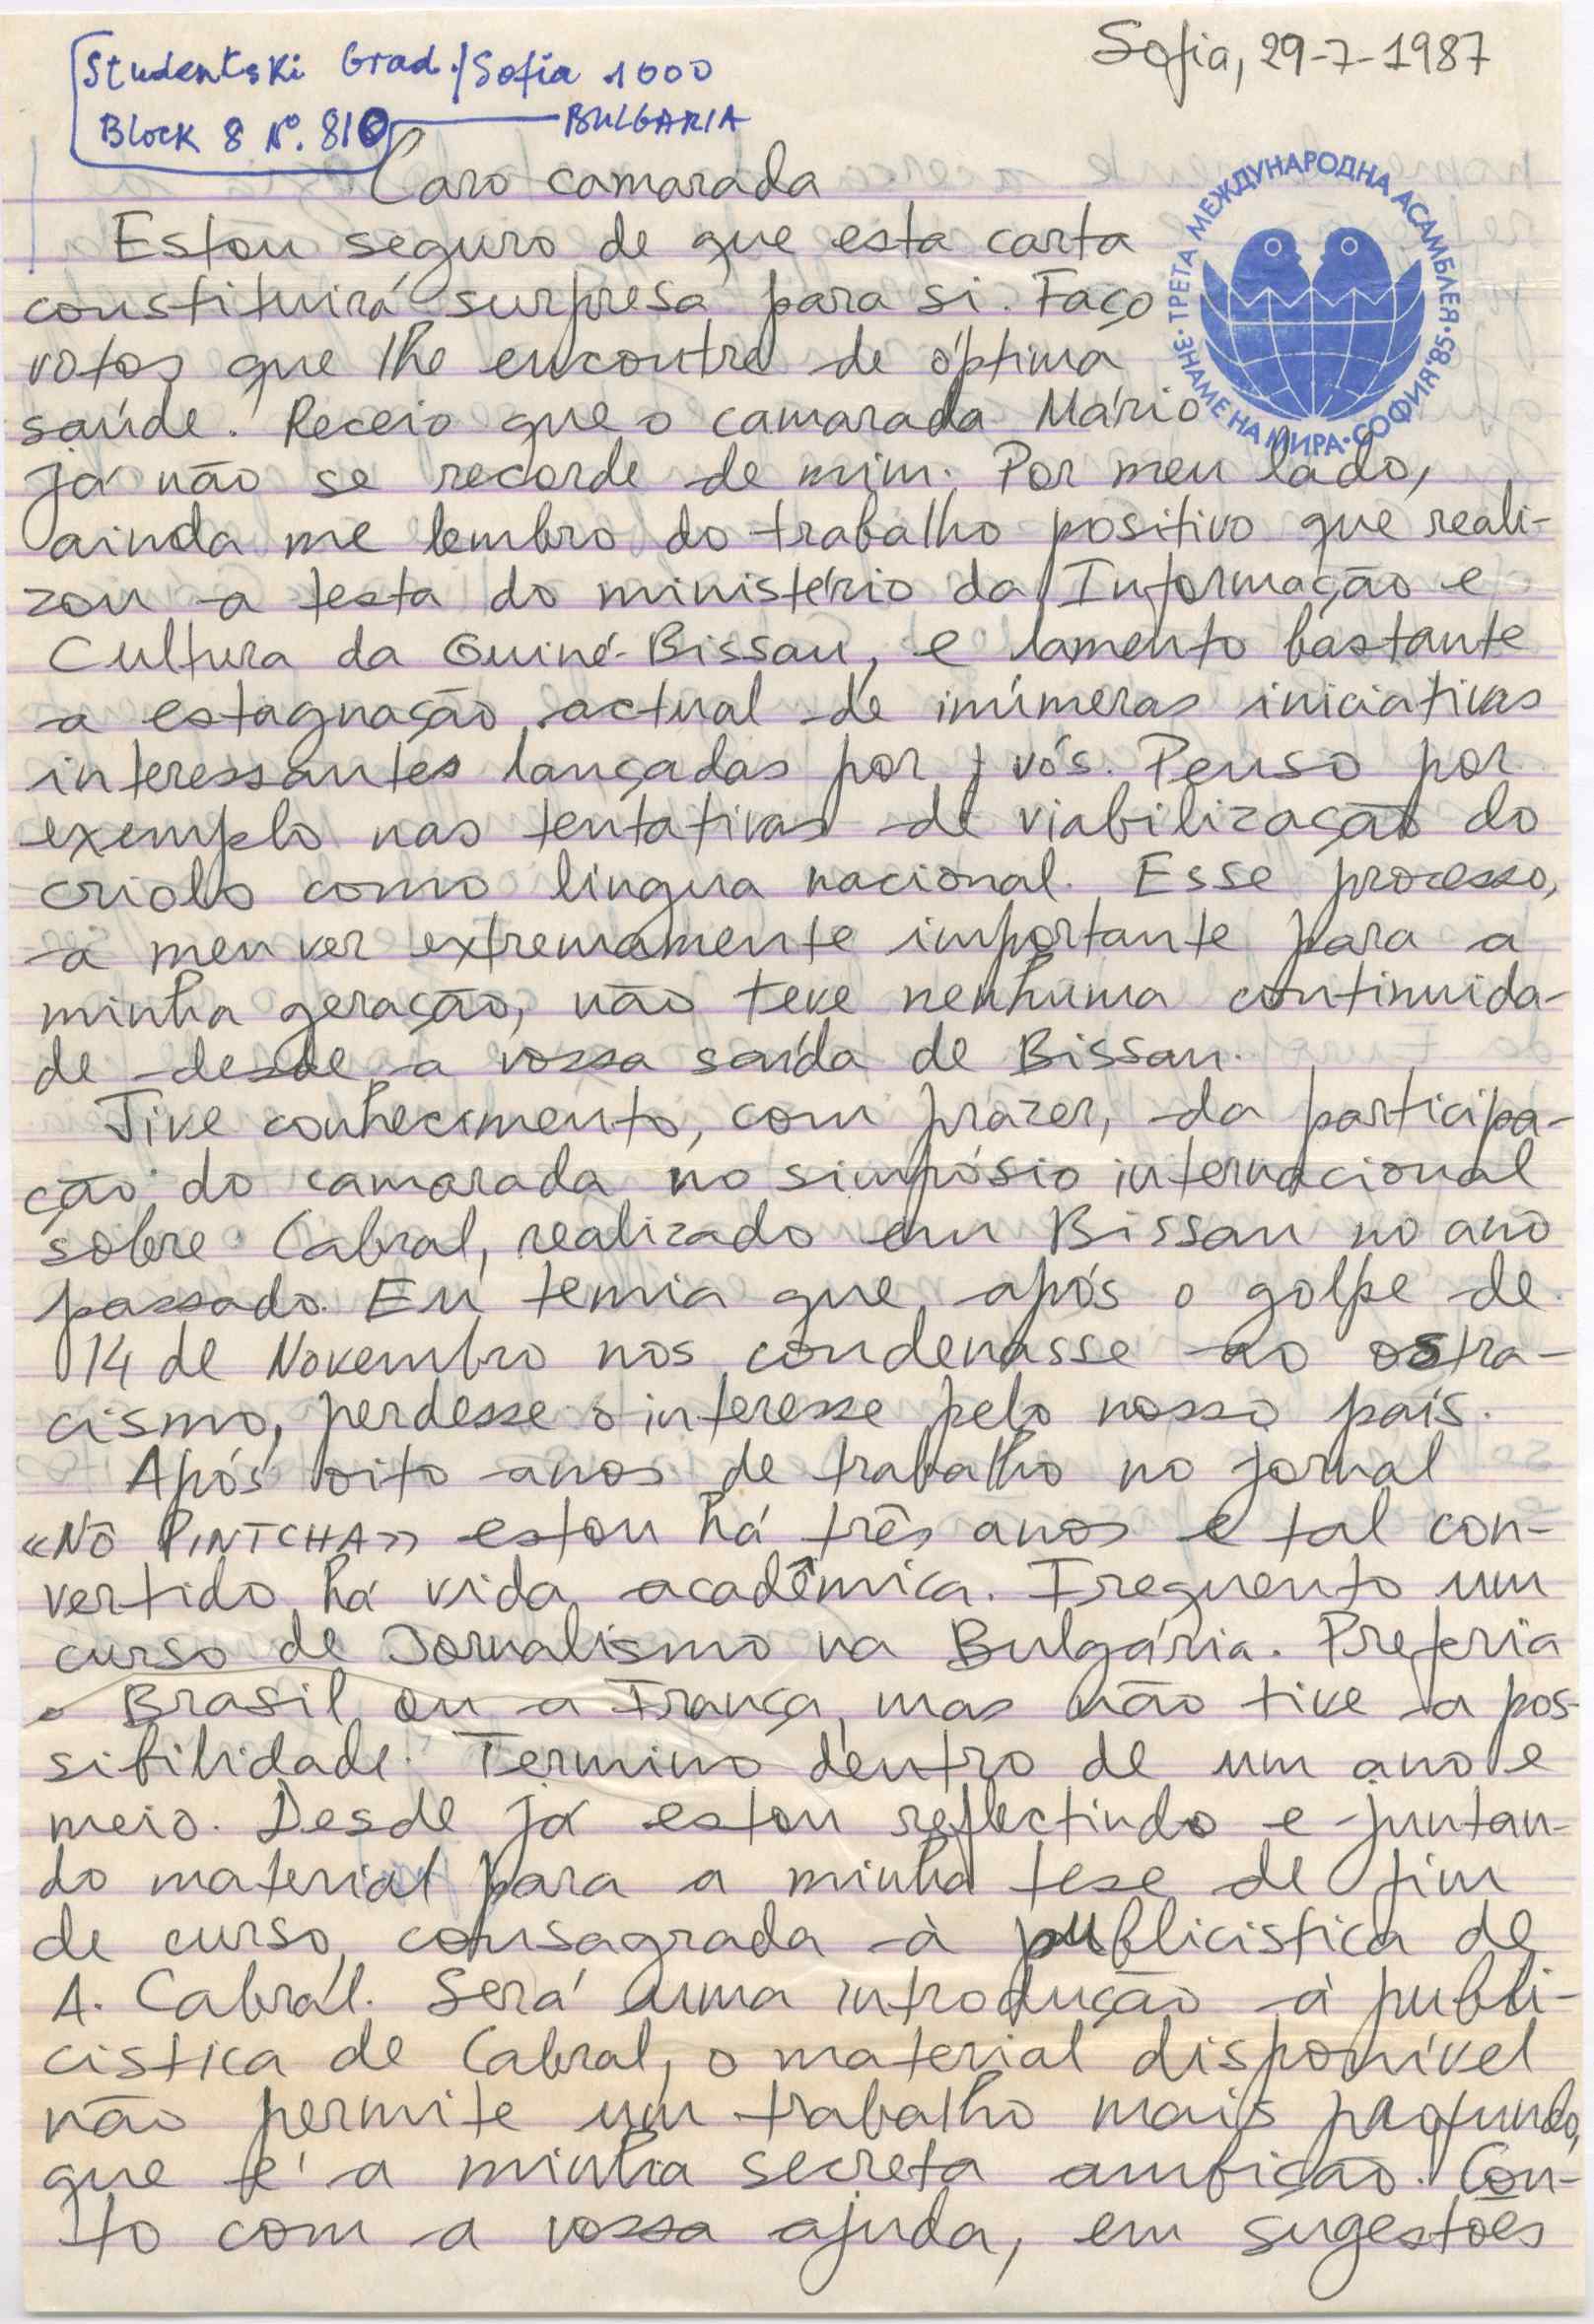 Sofia, 29-7-1987
Studentski Grad./Sofia 1000
Block 8 Nº. 810 BULGARIA
ТРЕТА МЕЖДУНАРОДНА АСАМБЛЕЯ • ЗНАМЕ НА МИРА • СОФИЯ '85 •
Caro camarada
Estou seguro de que esta carta
constituirá surpresa para si. Faço
votos que lhe encontre de óptima
saúde. Receio que o camarada Mário
já não se recorde de mim. Por meu lado,
ainda me lembro do trabalho positivo que reali-
zou a testa do ministério da Informação e
Cultura da Guiné-Bissau, e lamento bastante
a estagnação actual de inúmeras iniciativas
interessantes lançadas por vós. Penso por
exemplo nas tentativas de viabilização do
criolo como lingua nacional. Esse processo,
a meu ver extremamente importante para a
minha geração, não teve nenhuma continuida-
de desde a vossa saída de Bissau.
Tive conhecimento, com prazer, da participa-
ção do camarada no simpósio internacional
sobre Cabral, realizado em Bissau no ano
passado. Eu temia que, após o golpe de
14 de Novembro nos condenasse ao ostra-
cismo, perdesse o interesse pelo nosso país.
Após oito anos de trabalho no jornal
«NÔ PINTCHA» estou há três anos e tal con-
vertido há vida académica. Frequento um
curso de Jornalismo na Bulgária. Preferia
o Brasil ou a França, mas não tive a pos-
sibilidade. Termino dentro de um ano e
meio. Desde já estou reflectindo e juntan-
do material para a minha tese de fim
de curso, consagrada à publicistica de
A. Cabral. Será uma introdução à publi-
cistica de Cabral, o material disponível
não permite um trabalho mais profundo,
que é a minha secreta ambição. Con-
to com a vossa ajuda, em sugestões